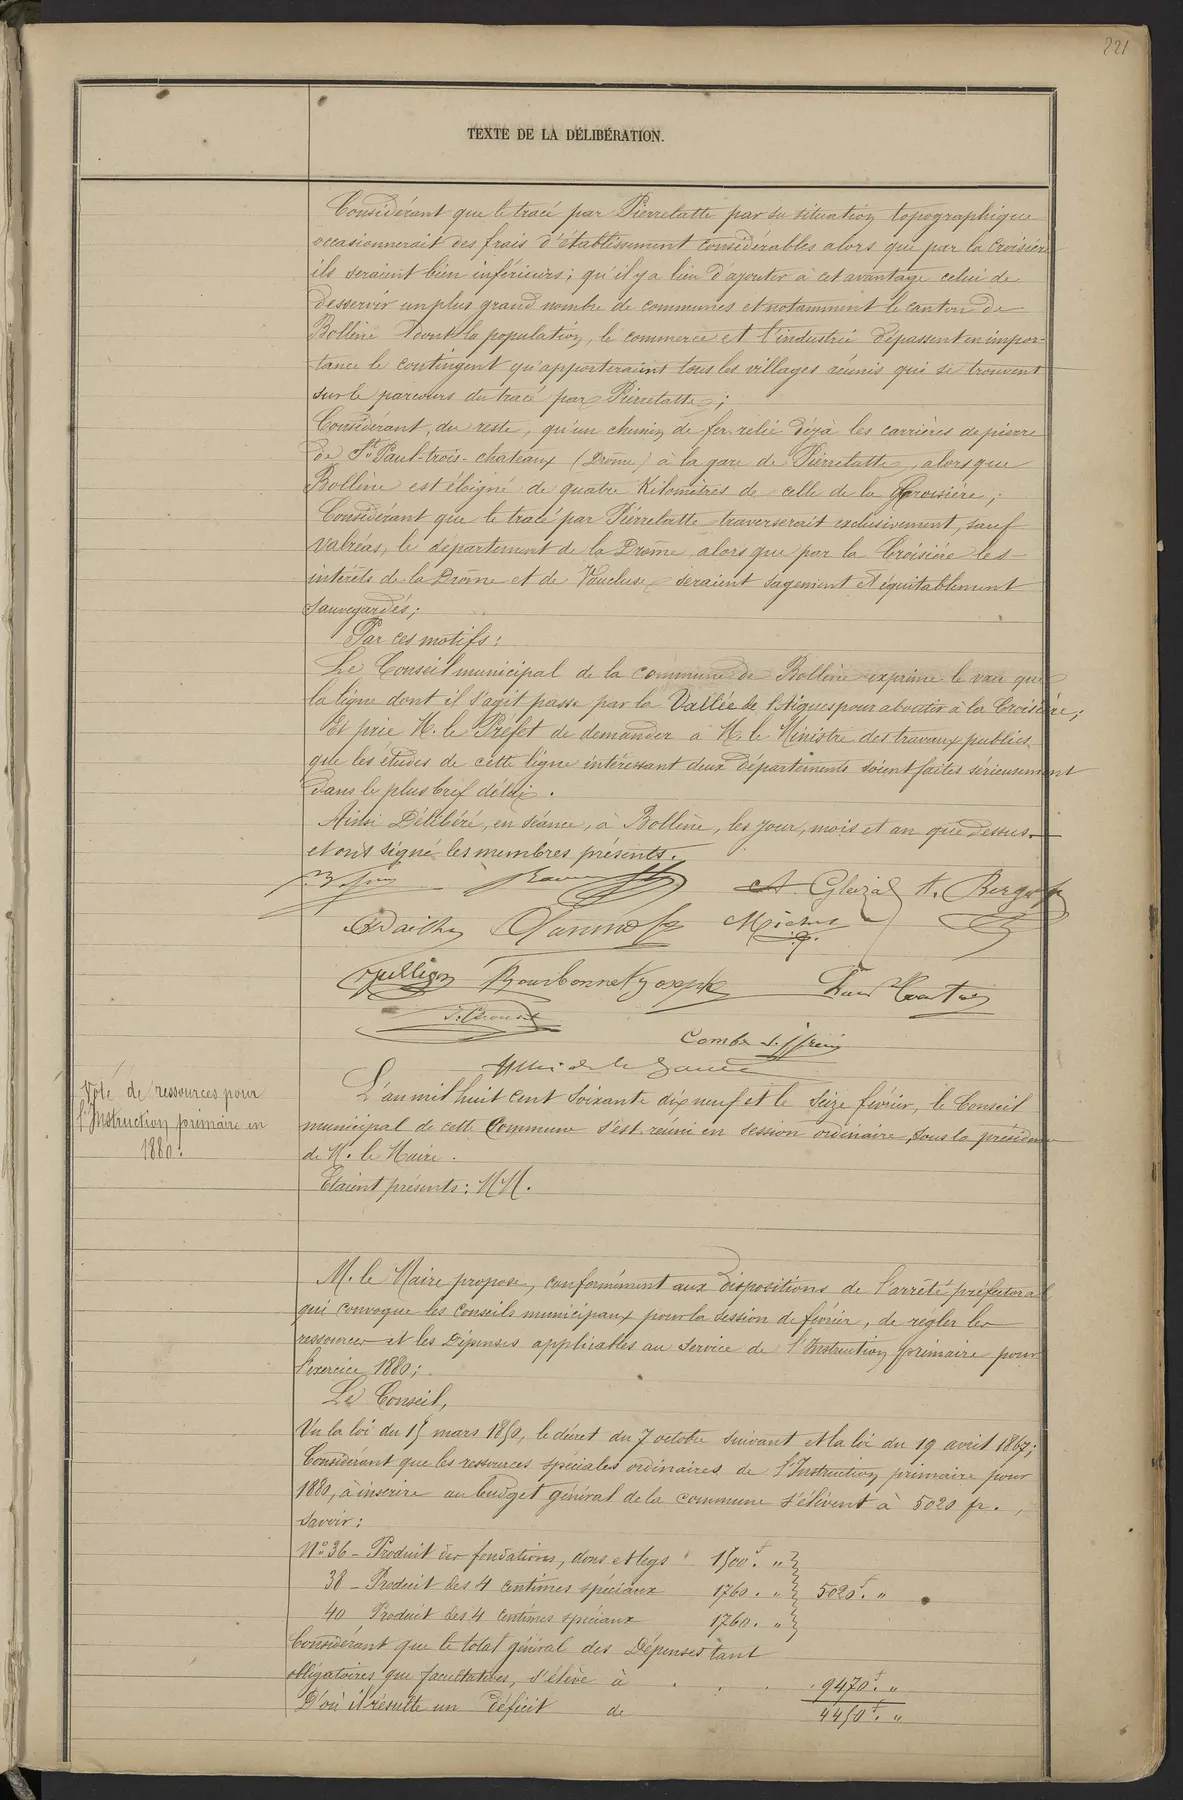 221
TEXTE DE LA DÉLIBÉRATION.
Considérant que le tracé par Pierrelatte par sa situation topographique
occasionnerait des frais d'établissement considérables alors que par la Croisière
ils seraient bien inférieurs; qu'il y a lieu d'ajouter à cet avantage celui de
desservir un plus grand nombre de communes et notamment le canton de
Bollène dont la population, le commerce et l'industrie dépassent en impor-
tance le contingent qu'apporteraient tous les villages réunis qui se trouvent
sur le parcours du tracé par Pierrelatte;
Considérant, du reste, qu'un chemin de fer relie déjà les carrières de pierre
de St. Paul-trois-chateaux (Drôme) à la gare de Pierrelatte, alors que
Bollène est éloigné de quatre Kilomètres de celle de la Croisière;
Considérant que le tracé par Pierrelatte traverserait exclusivement, sauf
Valréas, le département de la Drôme, alors que par la Croisière les
intérêts de la Drôme et de Vaucluse seraient sagement et équitablement
sauvegardés;
Par ces motifs:
Le Conseil municipal de la commune de Bollène exprime le vœu que
la ligne dont il s'agit passe par la Vallée de l'Aigues pour aboutir à la Croisière;
Et prie M. le Préfet de demander à M. le Ministre des travaux publics
que les études de cette ligne intéressant deux départements soient faites sérieusement
dans le plus bref délai.
Ainsi Délibéré, en séance, à Bollène, les jour, mois et an que dessus.
et ont signé les membres présents.
A. Gleizal A. Berger
Michel
Bourbonnet Joseph
Combe
Vote de ressources pour
l'Instruction primaire en
1880.
L'an mil huit cent soixante dix neuf et le seize février, le Conseil
municipal de cette Commune s'est réuni en session ordinaire, sous la présidence
de M. le Maire.
Etaient présents: MM.
M. le Maire propose, conformément aux dispositions de l'arrêté préfectoral
qui convoque les conseils municipaux pour la session de février, de régler les
ressources et les Dépenses applicables au service de l'Instruction primaire pour
l'exercice 1880;
Le Conseil,
Vu la loi du 15 mars 1850, le décret du 7 octobre suivant et la loi du 19 avril 1867;
Considérant que les ressources spéciales ordinaires de l'Instruction primaire pour
1880, à inscrire au budget général de la commune s'élèvent à 5020 fr.,
savoir:
No. 36 - Produit des fondations, dons et legs 1500f. "
38 - Produit des 4 centimes spéciaux 1760. " 5020f. "
40 Produit des 4 centimes spéciaux 1760. "
Considérant que le total général des Dépenses tant
obligatoires que facultatives, s'élève à . . . . 9470f. "
D'où il résulte un déficit de 4450f. "